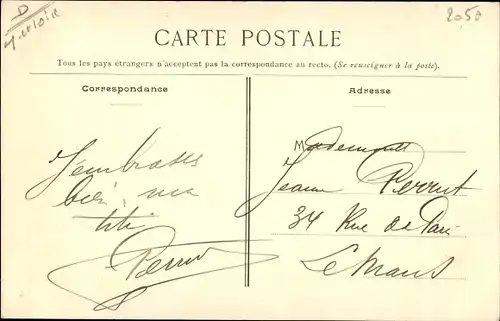 D
2050
CARTE POSTALE
Tous les pays étrangers n'acceptent pas la correspondance au recto. (Se renseigner à la poste).
Correspondance
J'embrasse
bien, ma
titi
Perrut
Adresse
Mademoiselle
Jeanne Perrut
34 Rue de Paris
Le Mans